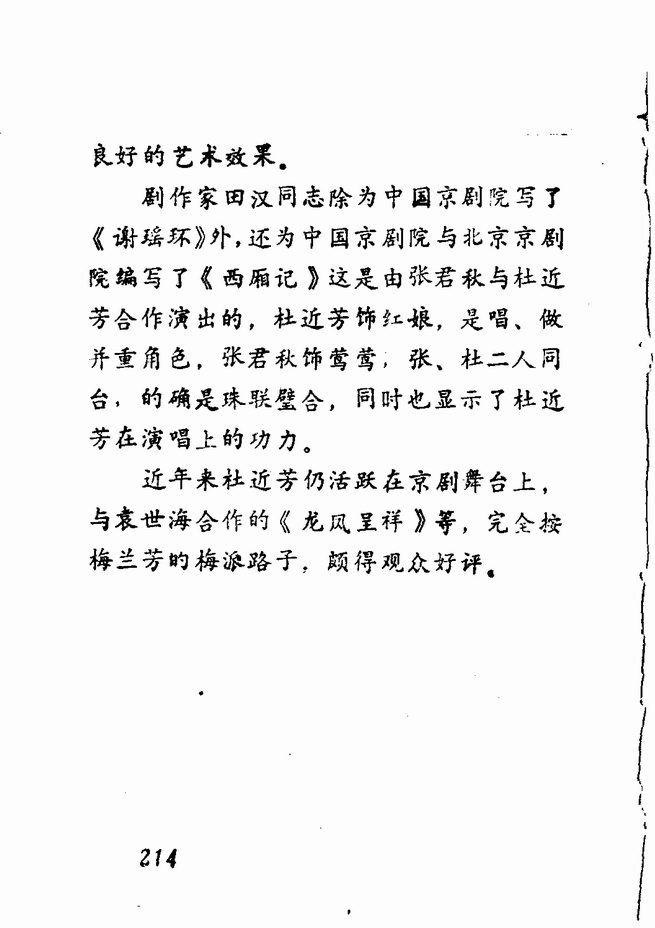 良好的艺术效果。
剧作家田汉同志除为中国京剧院写了
《谢瑶环》外，还为中国京剧院与北京京剧
院编写了《西厢记》这是由张君秋与杜近
芳合作演出的，杜近芳饰红娘，是唱、做
并重角色，张君秋饰莺莺；张、杜二人同
台，的确是珠联璧合，同时也显示了杜近
芳在演唱上的功力。
近年来杜近芳仍活跃在京剧舞台上，
与袁世海合作的《龙凤呈祥》等，完全按
梅兰芳的梅派路子，颇得观众好评。
214